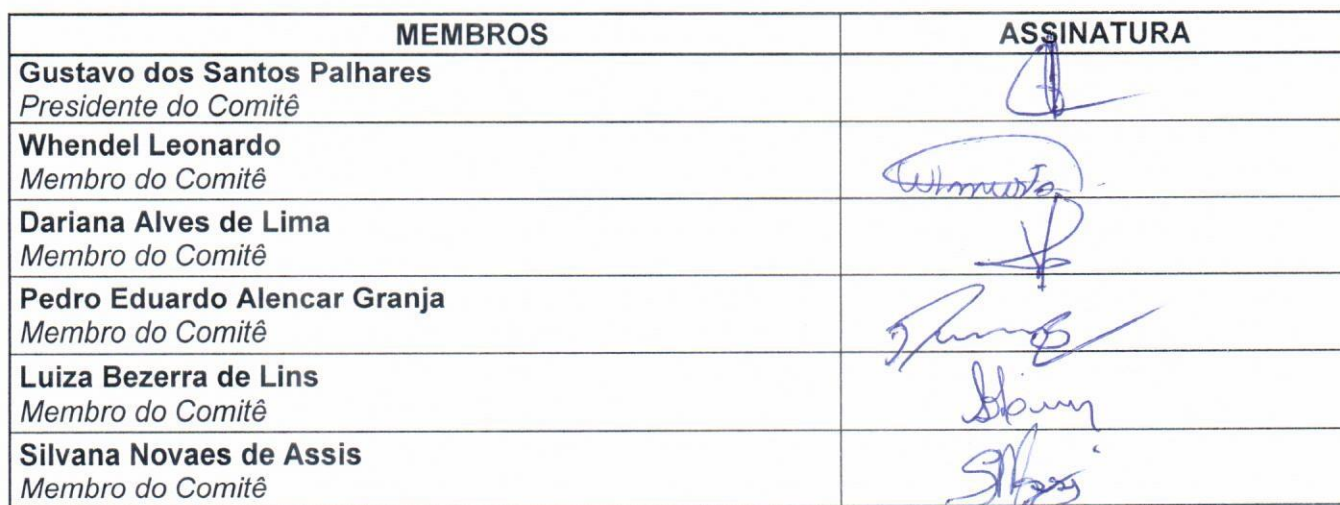 MEMBROS ASSINATURA
Gustavo dos Santos Palhares
Presidente do Comitê
Whendel Leonardo
Membro do Comitê
Dariana Alves de Lima
Membro do Comitê
Pedro Eduardo Alencar Granja
Membro do Comitê
Luiza Bezerra de Lins
Membro do Comitê
Silvana Novaes de Assis
Membro do Comitê